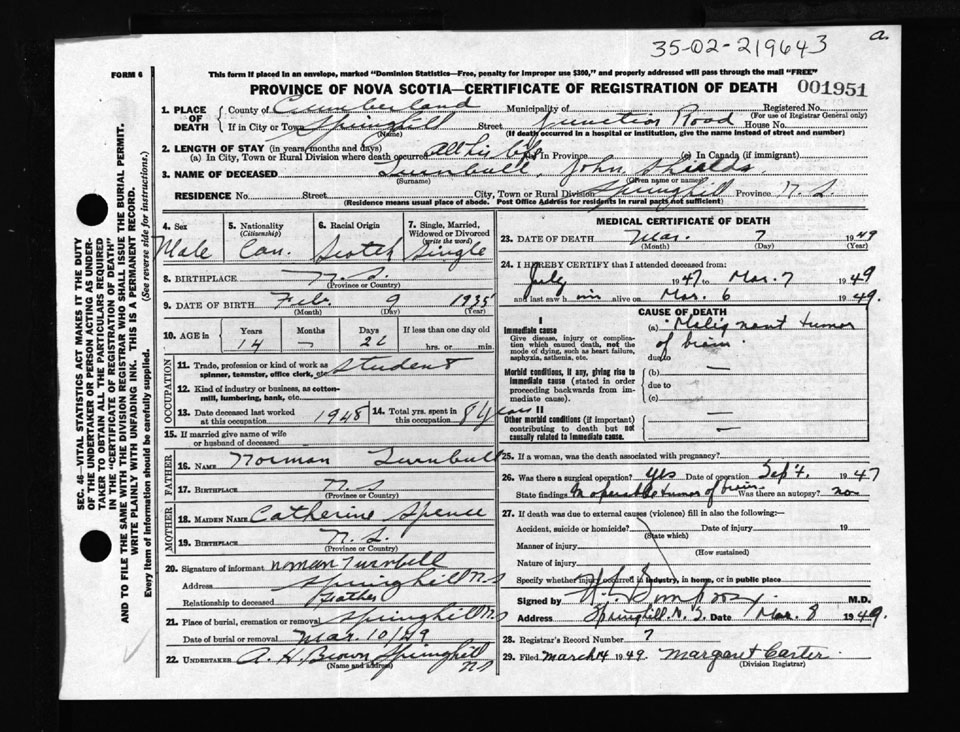 35-02-219643
a.
FORM 6
This form if placed in an envelope, marked "Dominion Statistics—Free, penalty for improper use $300," and properly addressed will pass through the mail "FREE"
PROVINCE OF NOVA SCOTIA—CERTIFICATE OF REGISTRATION OF DEATH
001951
1. PLACE OF DEATH
County of Cumberland Municipality of Registered No.
(For use of Registrar General only)
If in City or Town Springhill Street Junction Road House No.
(Name) (If death occurred in a hospital or institution, give the name instead of street and number)
2. LENGTH OF STAY (in years, months and days)
(a) In City, Town or Rural Division where death occurred All his life in Province (c) In Canada (if immigrant)
3. NAME OF DECEASED Turnbull, John Shields
(Surname) (Given name or names)
RESIDENCE No. Street City, Town or Rural Division Springhill Province N.S.
(Residence means usual place of abode. Post Office Address for residents in rural parts not sufficient)
4. Sex
Male
5. Nationality
(Citizenship)
Can.
6. Racial Origin
Scotch
7. Single, Married, Widowed or Divorced
(write the word)
Single
8. BIRTHPLACE N.S.
(Province or Country)
9. DATE OF BIRTH Feb. 9 1935
(Month) (Day) (Year)
10. AGE in
Years Months Days If less than one day old
14 — 26 hrs. or min.
OCCUPATION
11. Trade, profession or kind of work as student
spinner, teamster, office clerk, etc.
12. Kind of industry or business, as cotton-
mill, lumbering, bank, etc.
13. Date deceased last worked at this occupation 1948
14. Total yrs. spent in this occupation 8 years
15. If married give name of wife
or husband of deceased
FATHER
16. NAME Norman Turnbull
17. BIRTHPLACE N.S
MOTHER
18. MAIDEN NAME Catherine Spence
19. BIRTHPLACE N.S.
(Province or Country)
20. Signature of informant Norman Turnbull
Address Springhill N.S
Relationship to deceased Father
21. Place of burial, cremation or removal Springhill N.S
Date of burial or removal Mar. 10/49
22. UNDERTAKER A. H. Brown Springhill
(Name and address) N.S
MEDICAL CERTIFICATE OF DEATH
23. DATE OF DEATH Mar. 7 1949
(Month) (Day) (Year)
24. I HEREBY CERTIFY that I attended deceased from:
July 1947 to Mar. 7 1949
and last saw him alive on Mar. 6 1949.
CAUSE OF DEATH
I
Immediate cause
Give disease, injury or complica-
tion which caused death, not the
mode of dying, such as heart failure,
asphyxia, asthenia, etc.
(a) Malignant tumor
of brain.
due to
Morbid conditions, if any, giving rise to
immediate cause (stated in order
proceeding backwards from im-
mediate cause).
(b) —
due to
(c)
II
Other morbid conditions (if important)
contributing to death but not
causally related to immediate cause.
—
—
25. If a woman, was the death associated with pregnancy?
26. Was there a surgical operation? Yes Date of operation Sep 4. 1947
State findings Inoperable tumor of brain Was there an autopsy? no
27. If death was due to external causes (violence) fill in also the following:—
Accident, suicide or homicide? Date of injury 19
(State which)
Manner of injury
(How sustained)
Nature of injury
Specify whether injury occurred in industry, in home, or in public place
Signed by M.D.
Address Springhill N.S. Date Mar. 8 1949.
28. Registrar's Record Number 7
29. Filed March 14 1949. Margaret Carter
(Division Registrar)
SEC. 46—VITAL STATISTICS ACT MAKES IT THE DUTY
OF THE UNDERTAKER OR PERSON ACTING AS UNDER-
TAKER TO OBTAIN ALL THE PARTICULARS REQUIRED
IN THE "CERTIFICATE OF REGISTRATION OF DEATH"
AND TO FILE THE SAME WITH THE DIVISION REGISTRAR WHO SHALL ISSUE THE BURIAL PERMIT.
WRITE PLAINLY WITH UNFADING INK. THIS IS A PERMANENT RECORD.
Every item of information should be carefully supplied. (See reverse side for instructions.)